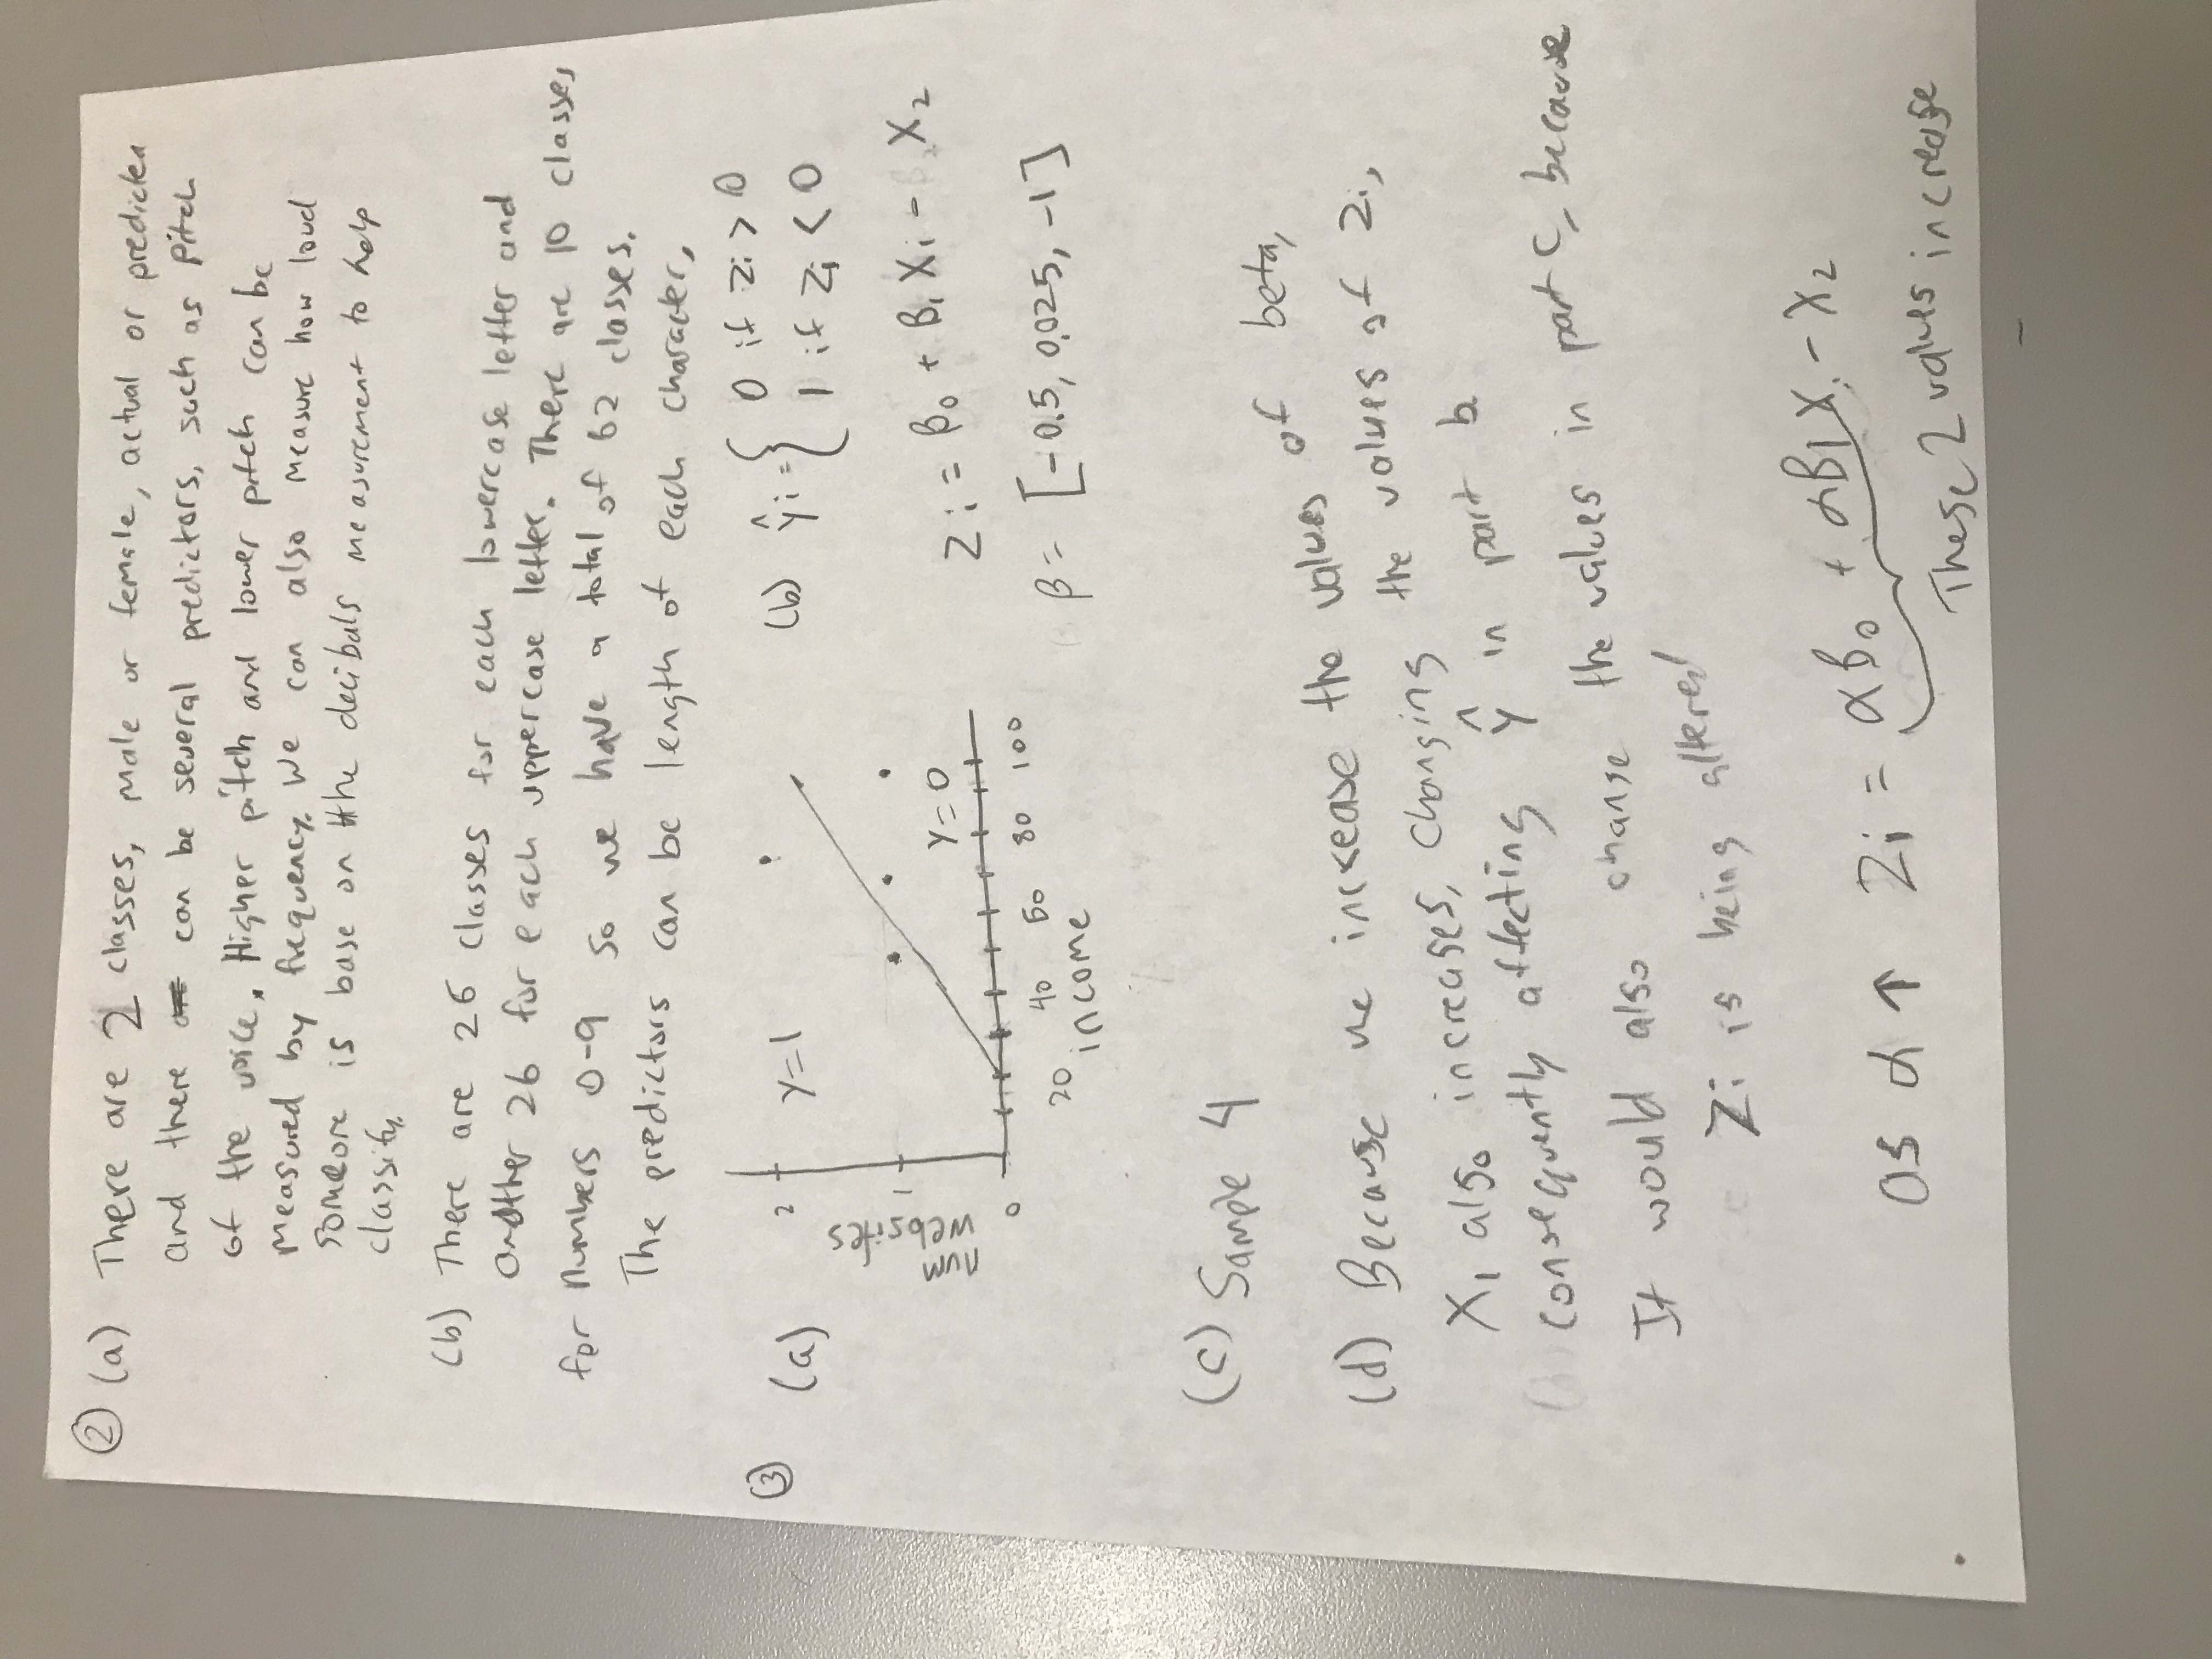 ② (a) There are 2 classes, male or female, actual or predicted
and there can be several predictors, such as pitch
of the voice. Higher pitch and lower pitch can be
measured by frequency. We can also measure how loud
someone is base on the decibals measurement to help
classify.
(b) There are 26 classes for each lowercase letter and
another 26 for each uppercase letter. There are 10 classes
for numbers 0-9 so we have a total of 62 classes.
The predictors can be length of each character.
③ (a)
2
1
0
num
websites
Y=1
Y=0
20 40 60 80 100
income
(b) ŷi = { 0 if zi > 0
1 if zi < 0
zi = β0 + β1 Xi - X2
β = [-0.5, 0.025, -1]
(c) Sample 4
(d) Because we increase the values of beta,
X1 also increases, changing the values of zi,
consequently affecting ŷ in part b
It would also change the values in part c, because
zi is being altered
as α ↑ zi = αβ0 + αβ1X1 - X2
These 2 values increase